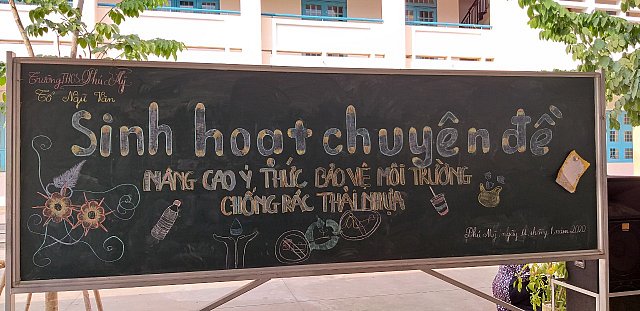 Trường THCS Phú Mỹ
Tổ Ngữ Văn
Sinh hoạt chuyên đề
NÂNG CAO Ý THỨC BẢO VỆ MÔI TRƯỜNG
CHỐNG RÁC THẢI NHỰA
Phú Mỹ, ngày 11 tháng 1 năm 2020